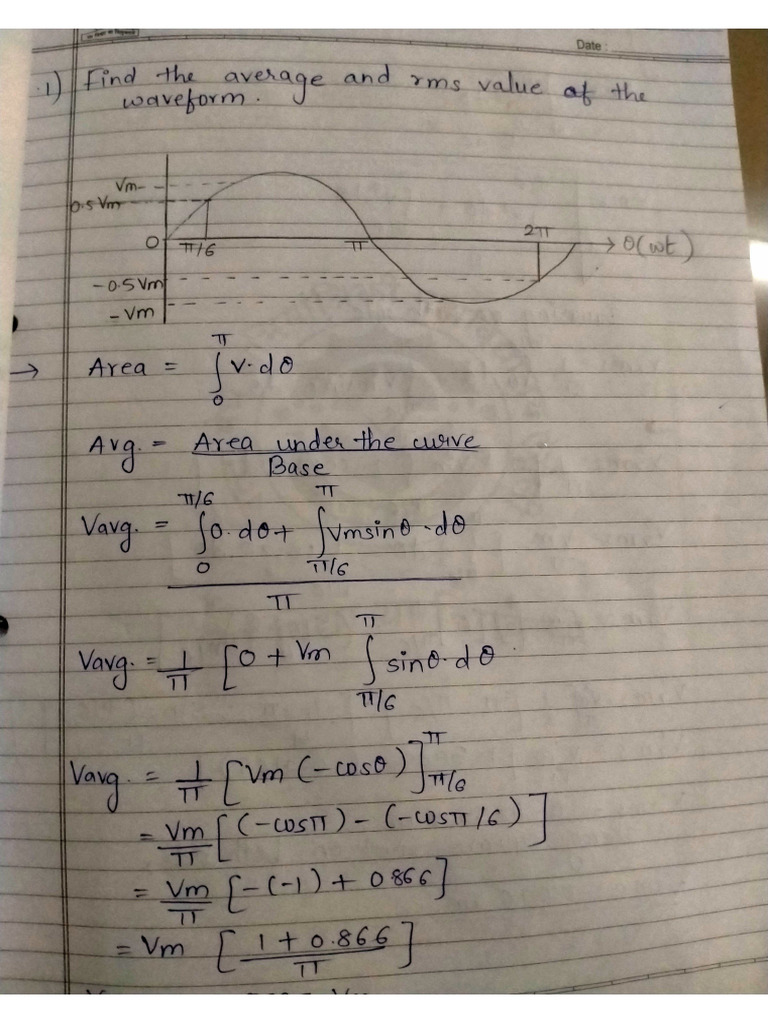 Date :
1) Find the average and rms value of the
waveform.
Vm
0.5 Vm
0
π/6
π
2π
θ(wt)
-0.5 Vm
-Vm
→ Area = ∫₀^π v·dθ
Avg. = Area under the curve
Base
Vavg. = ∫₀^π/6 0·dθ + ∫π/6^π Vmsinθ·dθ
π
Vavg. = 1/π [0 + Vm ∫π/6^π sinθ·dθ
Vavg. = 1/π [Vm (-cosθ)]π/6^π
= Vm/π [(-cosπ) - (-cosπ/6)]
= Vm/π [-(-1) + 0.866]
= Vm [1 + 0.866 / π]